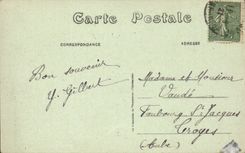 Carte Postale
CORRESPONDANCE
ADRESSE
Bon souvenir
Y. Gilbert
Madame et Monsieur
Vaudé
Faubourg St Jacques
Troyes
(Aube)